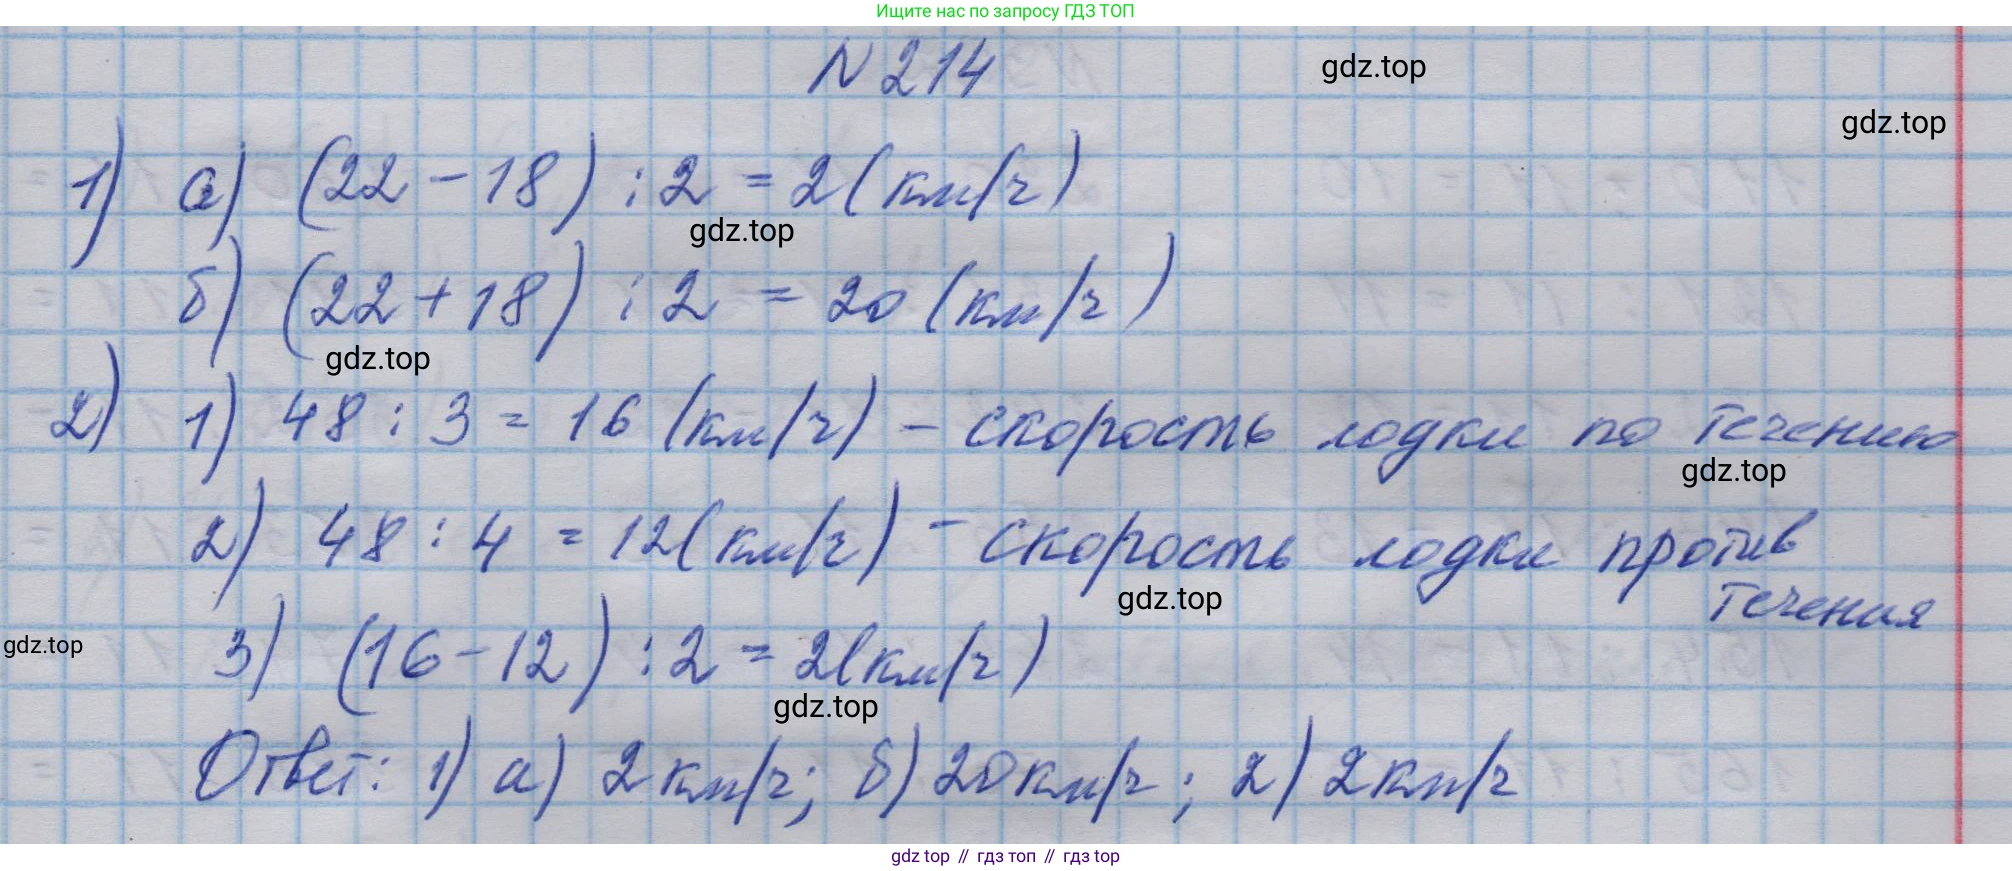 Ищите нас по запросу ГДЗ ТОП
N 214
gdz.top
gdz.top
1) а) (22 - 18) : 2 = 2 (км/ч)
gdz.top
б) (22 + 18) : 2 = 20 (км/ч)
gdz.top
2) 1) 48 : 3 = 16 (км/ч) - скорость лодки по течению
gdz.top
2) 48 : 4 = 12 (км/ч) - скорость лодки против
течения
gdz.top
gdz.top
3) (16 - 12) : 2 = 2 (км/ч)
gdz.top
Ответ: 1) а) 2 км/ч; б) 20 км/ч; 2) 2 км/ч
gdz top // гдз топ // гдз top